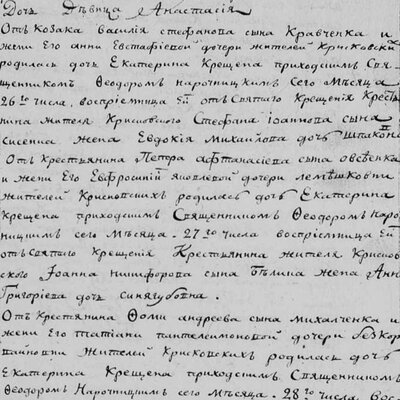 Дочь Дѣвица Анастасія
Отъ козака василія стефанова сына Кравченка и
жени Его анни Евстафіевой дочери жителей Крисковски
родилась дочь Екатерина Крещена приходсимъ Свя-
щенникомъ Ѳеодоромъ нарочницкимъ Сего мѣсяца
26го числа, воспріемница Ей отъ Святаго Крещенія Крест
нина жителя Крисковского Стефана Іоаннова сына
жена Евдокія михайлова дочь
Отъ Крестьянина Петра афтанасіева сына овсѣенка
и жени Его Евфросиніи яковлевой дочери лемѣшковни
жителей Крисковскихъ родилась дочь Екатерина
Крещена приходсимъ Священникомъ Ѳеодоромъ наро-
ницкимъ сего мѣсяца. 27го числа воспріемница Ей
отъ Святаго Крещенія Крестьянина жителя Крисков
ского Іоанна никифорова сына бѣлика жена Анн
Григоріева дочь синягубовна.
Отъ Крестянина Ѳоми андреева сына михалченка и
жени Его татіани пантелеимоновой дочери безкор
вайновни жителей Крисковскихъ родилась дочь
Екатерина Крещена приходсимъ Священникомъ
Ѳеодоромъ Нарочницкимъ сего мѣсяца. 28го числа. вос